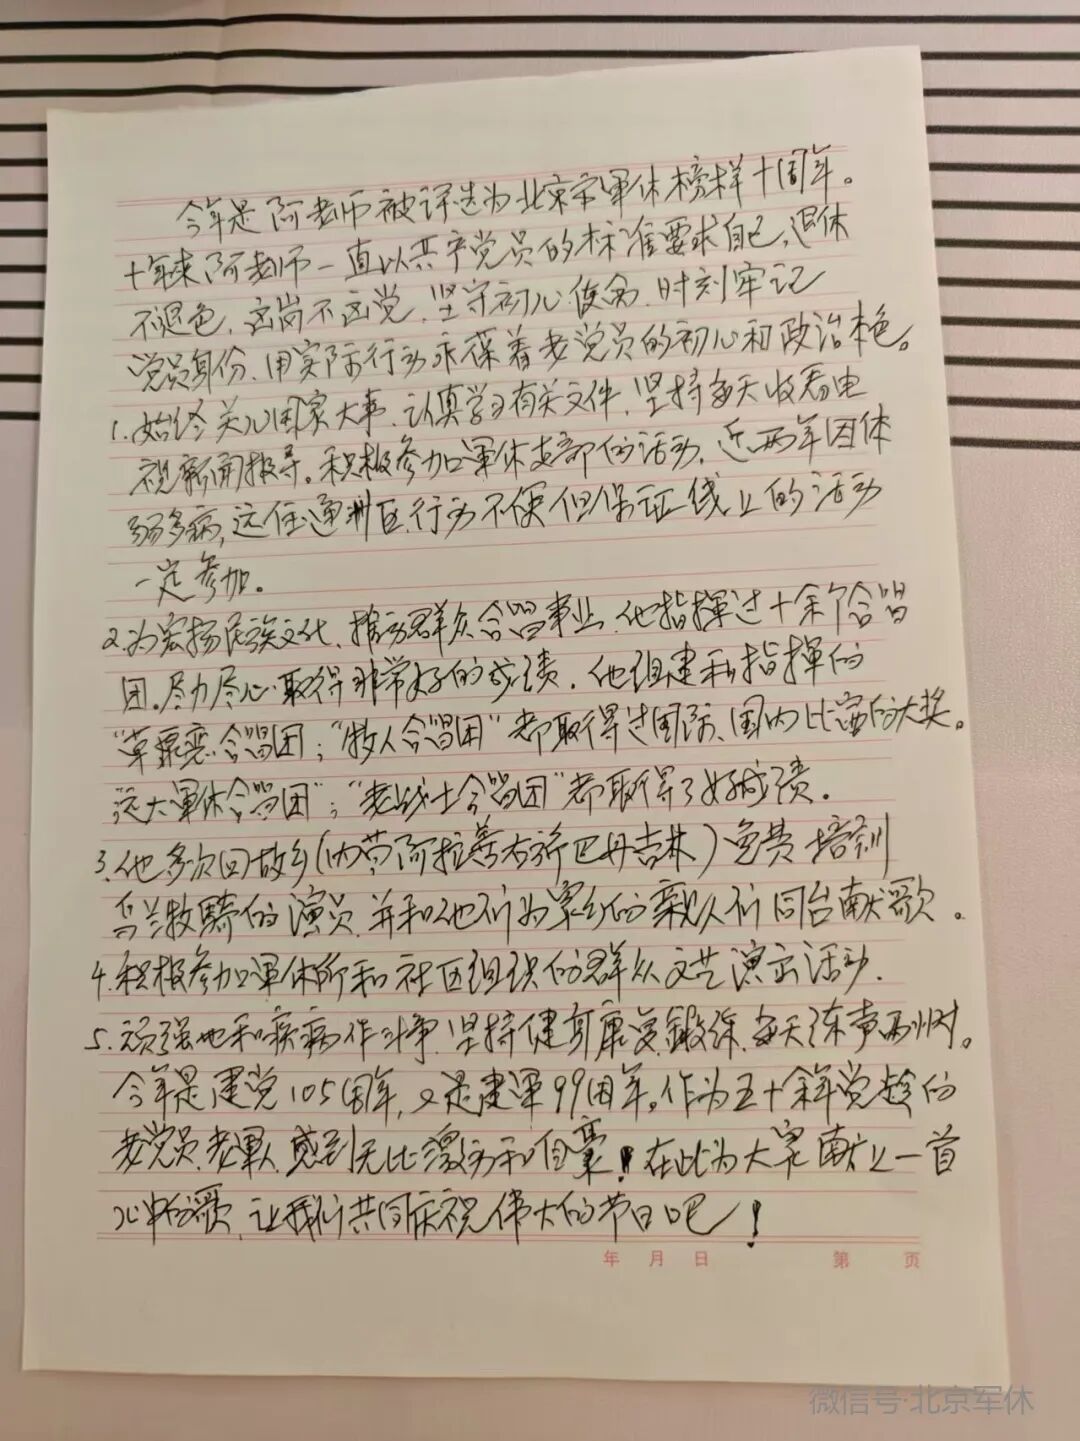 今年是阿老师被评选为北京市军休榜样十周年。
十年来阿老师一直以共产党员的标准要求自己,退休
不退色,离岗不离党,坚守初心使命,时刻牢记
党员身份、用实际行动永葆着老党员的初心和政治本色。
1.始终关心国家大事、认真学习有关文件,坚持每天收看电
视新闻报导。积极参加军休支部的活动,近两年因体
弱多病,远住通州区行动不便但保证线上的活动
一定参加。
2.为宏扬民族文化,推动群众合唱事业,他指挥过十余个合唱
团。尽力尽心取得非常好的成绩。他组建和指挥的
“草原恋合唱团;“牧人合唱团”都取得过国际、国内比赛的大奖。
远大军休合唱团”;“老战士合唱团”都取得了好成绩。
3.他多次回故乡(内蒙阿拉善右旗巴丹吉林)免费培训
乌兰牧骑的演员,并和他们为家乡的亲人们同台献歌。
4.积极参加军休所和社区组织的群众文艺演出活动.
5.顽强地和疾病作斗争,坚持健身康复锻练,每天练声两小时。
今年是建党105周年,又是建军99周年。作为五十余年党龄的
老党员、老军人感到无比激动和自豪!在此为大家献上一首
心中的歌,让我们共同庆祝伟大的节日吧!
年 月 日 第 页
微信号·北京军休